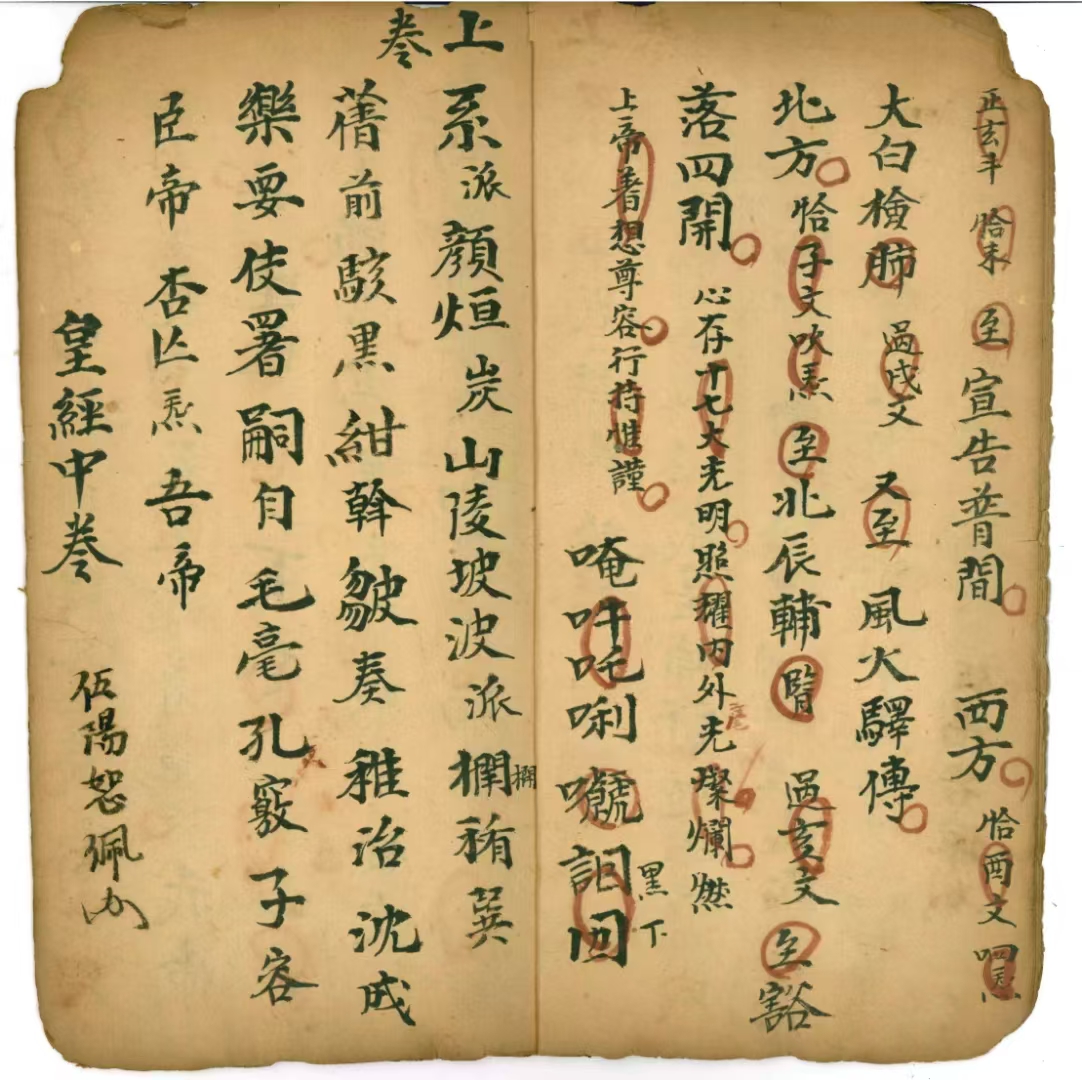 正玄斗 恰未 至 宣告普間 西方 恰酉文 呬炁
大白檢肺 過戌文 又至 風火驛傳
北方 恰子文吹炁 至北辰輔腎 過亥文 至豁
落四開 心存十七大光明照耀內外光燦爛然
上帝普想尊容行持惟謹 唵吽吒唎 囗
黑下
上卷
系派顏烜炭山陵坡波派棩
蓿前駭黒紺幹皺奏稚治沈成
樂要使署嗣自毛毫孔竅子容
臣帝 杏 炁吾帝
皇經中卷
伍陽恕佩